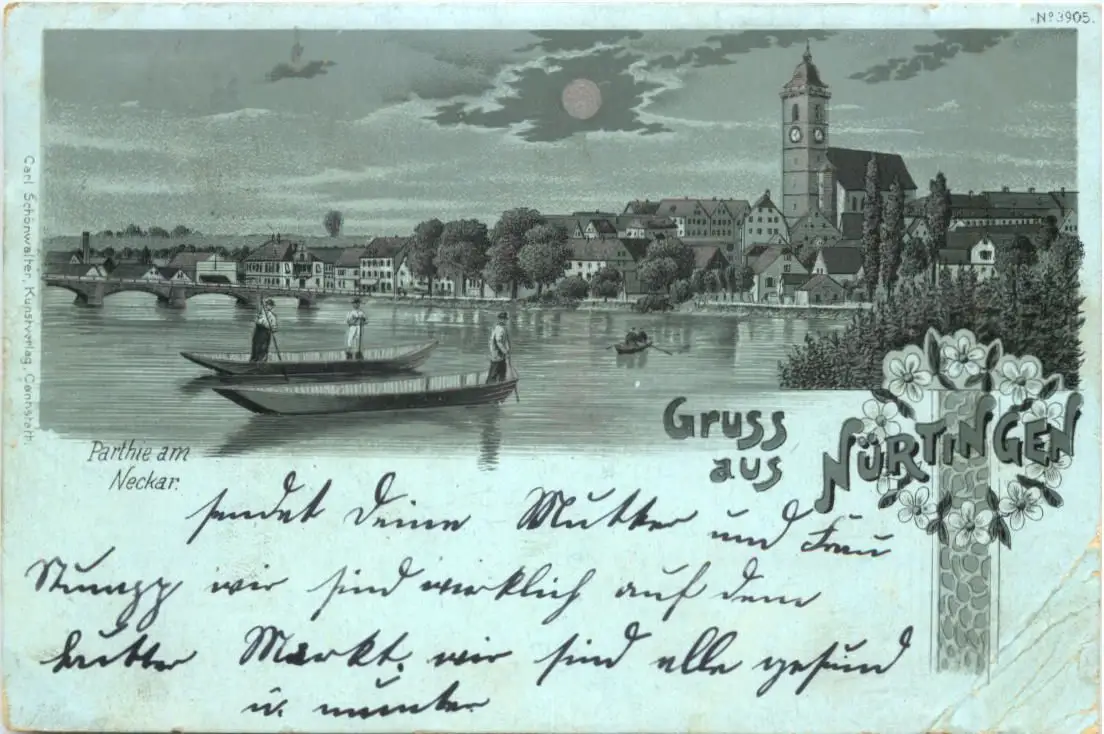 No 3905.
Carl Schönwalter, Kunstverlag, Cannstatt.
Parthie am
Neckar.
Gruss
aus
NÜRTINGEN
sendet Deine Mutter und Frau
Stumpp wir sind wirklich auf dem
Markt. wir sind alle gesund
u. munter